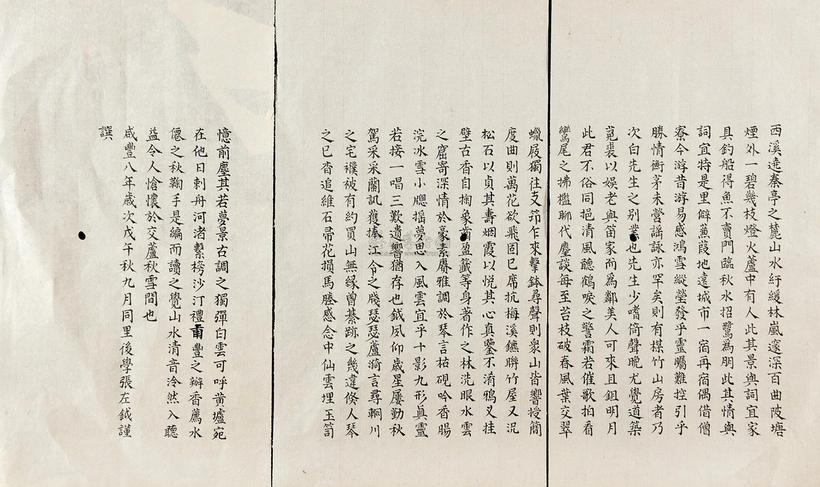 西溪遶秦亭之麓山水紆緩林嵐邃深百曲陂塘
煙外一碧幾枝燈火蘆中有人此其景與詞宜家
具釣船得魚不賣門臨秋水招鷺為朋此其情與
詞宜特是里僻蒹葭地遠城市一宿再宿偶借僧
寮今游昔游易感鴻雪縱瑩發乎靈矚難控引乎
勝情衡茅未營謠詠亦罕矣則有楳竹山房者乃
次白先生之別業也先生少嗜倚聲晚尤覺道築
菟裘以娛老與笛家而為鄰美人可來且鉏明月
此君不俗同挹清風聽鶴唳之警霜若催歌拍看
鸞尾之拂檻聊代麈談每至苔枝破春風葉交翠
蠟屐獨往支笻乍來擊鉢尋聲則衆山皆響授簡
度曲則萬花欲飛固已席抗梅溪鑣聯竹屋又況
松石以貞其壽烟霞以悅其心真鑒不淆鴉叉挂
壁古香自掬象
盈籤等身著作之林洗眼水雲
之窟寄深情於豪素賡雅調於琴言祐硯吟香腸
浣冰雪小牕搖夢思入風雲宜乎十影九形真靈
若接一唱三歎遺響猶存也鉞夙仰歲星屢勤秋
駕采采蘭訊獲捧江令之牋瑟瑟蘆漪言尋輞川
之宅襆被有約買山無緣曾綦跡之幾違倏人琴
之已杳追維石帚花損馬塍感念中仙雲埋玉笥
憶前塵其若夢景古調之獨彈白雲可呼黃壚宛
在他日刺舟河渚繫榜沙汀禮
豐之瓣香薦水
僊之秋鞠手是編而讀之覺山水清音泠然入聽
益令人愴懷於交蘆秋雪間也
咸豐八年歲次戊午秋九月同里後學張左鉞謹
譔